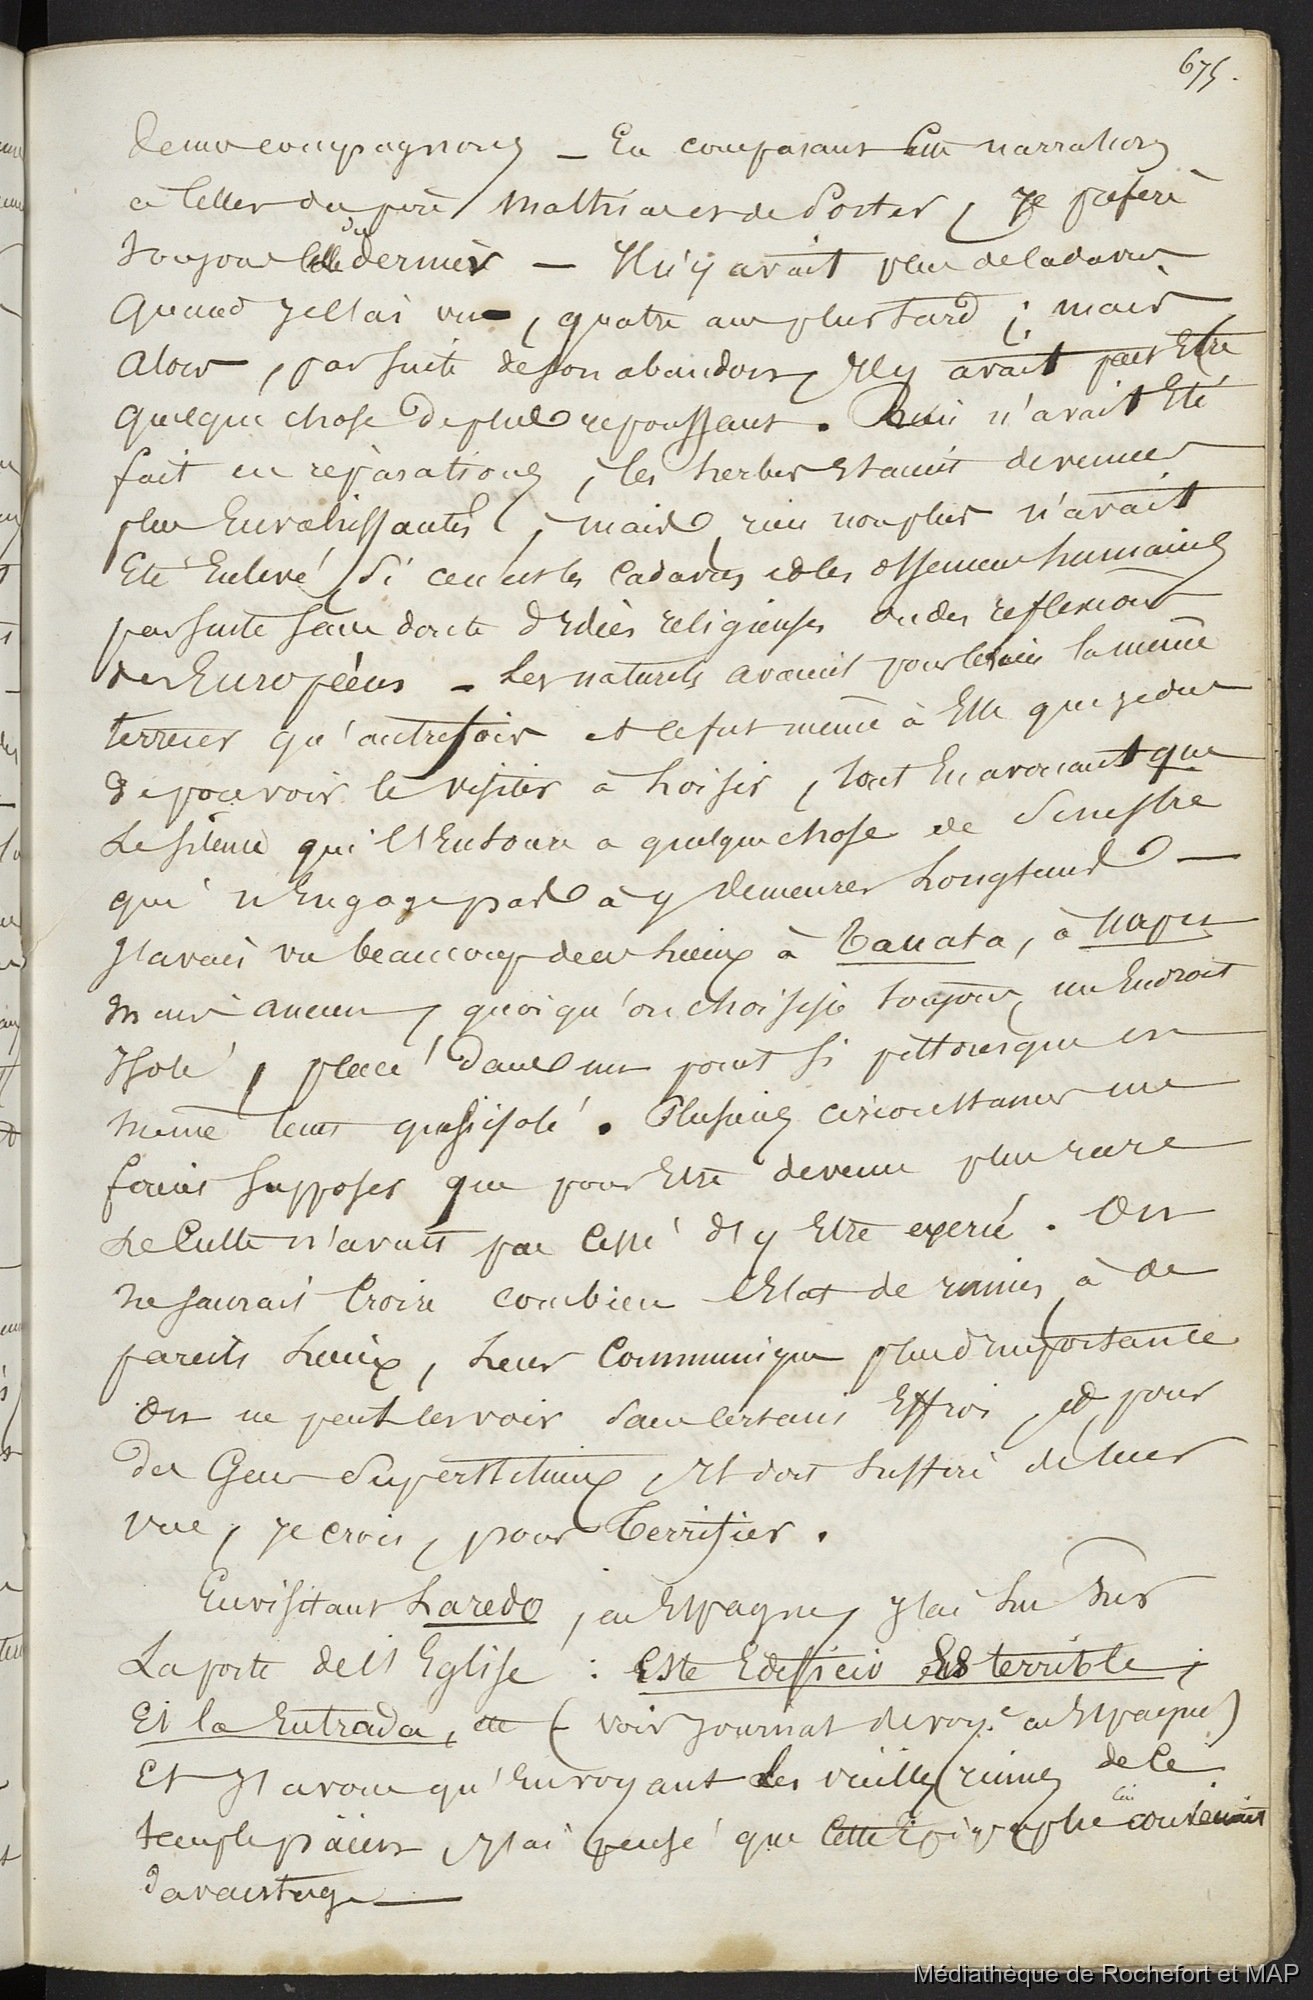 675.
de mes compagnons — En comparant cette narration
à celles du père Mathias et de Porter, je préfère
toujours celle du dernier — Il n'y avait plus de cadavres
quand je l'ai vu, quatre ans plus tard ; mais
alors, par suite de son abandon, il y avait peut être
quelque chose de plus repoussant. Rien n'avait été
fait en réparations, les herbes étaient devenues
plus envahissantes, mais rien non plus n'avait
été enlevé si ce n'est les cadavres et les ossemens humains
par suite sans doute d'idées religieuses ou des reflexions
des Européens — Les naturels avaient pour le lieu la même
terreur qu'autrefois et ce fut même à elle que je dus
de pouvoir le visiter à loisir, tout en avouant que
le silence qui l'entoure a quelque chose de sinistre
qui n'engage pas à y demeurer longtems —
J'avais vu beaucoup de ces lieux à Tauata, à Uapu
mais aucun, quoiqu'on choisisse toujours un endroit
isolé, placé dans un point si pittoresque en
même tems qu'isolé. Plusieurs circonstances me
firent supposer que pour être devenu plus rare
le culte n'avait pas cessé d'y être exercé. On
ne saurait croire combien l'état de ruines à de
pareils lieux, leur communique plus d'importance
On ne peut les voir sans certain effroi, et pour
des gens superstitieux, il doit suffire de leur
vue, je crois, pour terrifier.
En visitant Laredo, en Espagne, j'ai lu sur
la porte de l'Eglise : Este Edificio es terrible,
Et la Entrada, etc (voir journal de voy.e en Espagne)
Et j'avoue qu'en voyant les vieilles ruines de ce
temple païen, j'ai pensé que cette Epigraphe lui convenait
davantage —
Médiathèque de Rochefort et MAP